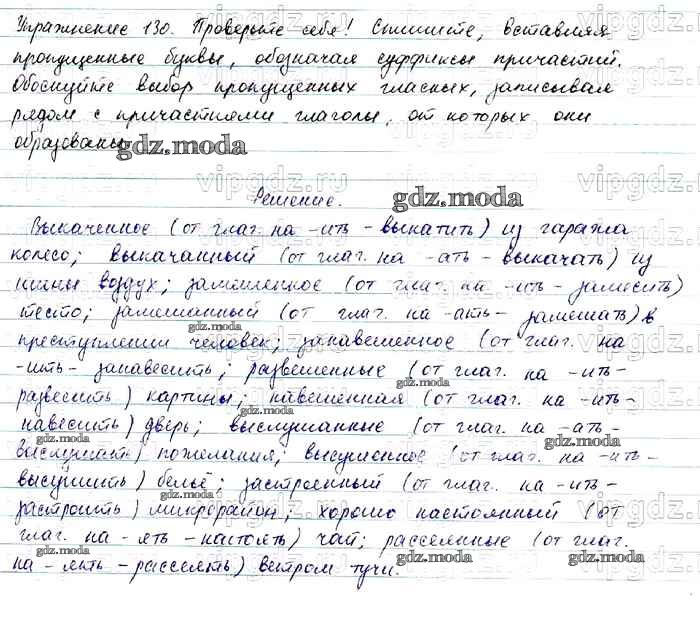 Упражнение 130. Проверьте себя! Спишите, вставляя
пропущенные буквы, обозначая суффиксы причастий.
Обоснуйте выбор пропущенных гласных, записывая
рядом с причастиями глаголы, от которых они
образованы.
gdz.moda
Решение.
gdz.moda
Выкаченное (от глаг. на -ить - выкатить) из гаража
колесо; выкачанный (от глаг. на -ать - выкачать) из
шины воздух; замешенное (от глаг. на -ить - замесить)
тесто; замешанный (от глаг. на -ать - замешать) в
преступлении человек; занавешенное (от глаг. на
-ить - занавесить; развешенные (от глаг. на -ить-
развесить) картины; навешенная (от глаг. на -ить-
навесить) дверь; выслушанные (от глаг. на -ать-
выслушать) пожелания; высушенное (от глаг. на -ить-
высушить) бельё; застроенный (от глаг. на -ить-
застроить) микрорайон; хорошо настоянный (от
глаг. на -ять - настоять) чай; рассеянные (от глаг.
на -ять - рассеять) ветром тучи.